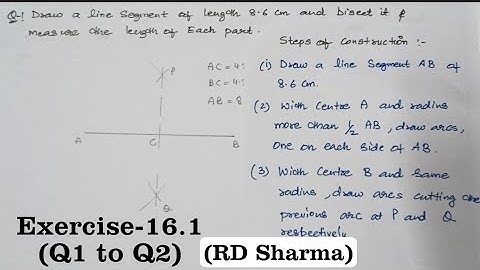 Q.1 Draw a line Segment of length 8.6 cm and bisect it &
measure the length of Each part.
Steps of construction :-
AC = 4.
BC = 4.
AB = 8
P
A C B
Q
(1) Draw a line Segment AB of
8.6 cm.
(2) With Centre A and radius
more than 1/2 AB, draw arcs,
one on each side of AB.
(3) With Centre B and Same
radius, draw arcs cutting the
previous arc at P and Q
respectively
Exercise-16.1
(Q1 to Q2) (RD Sharma)